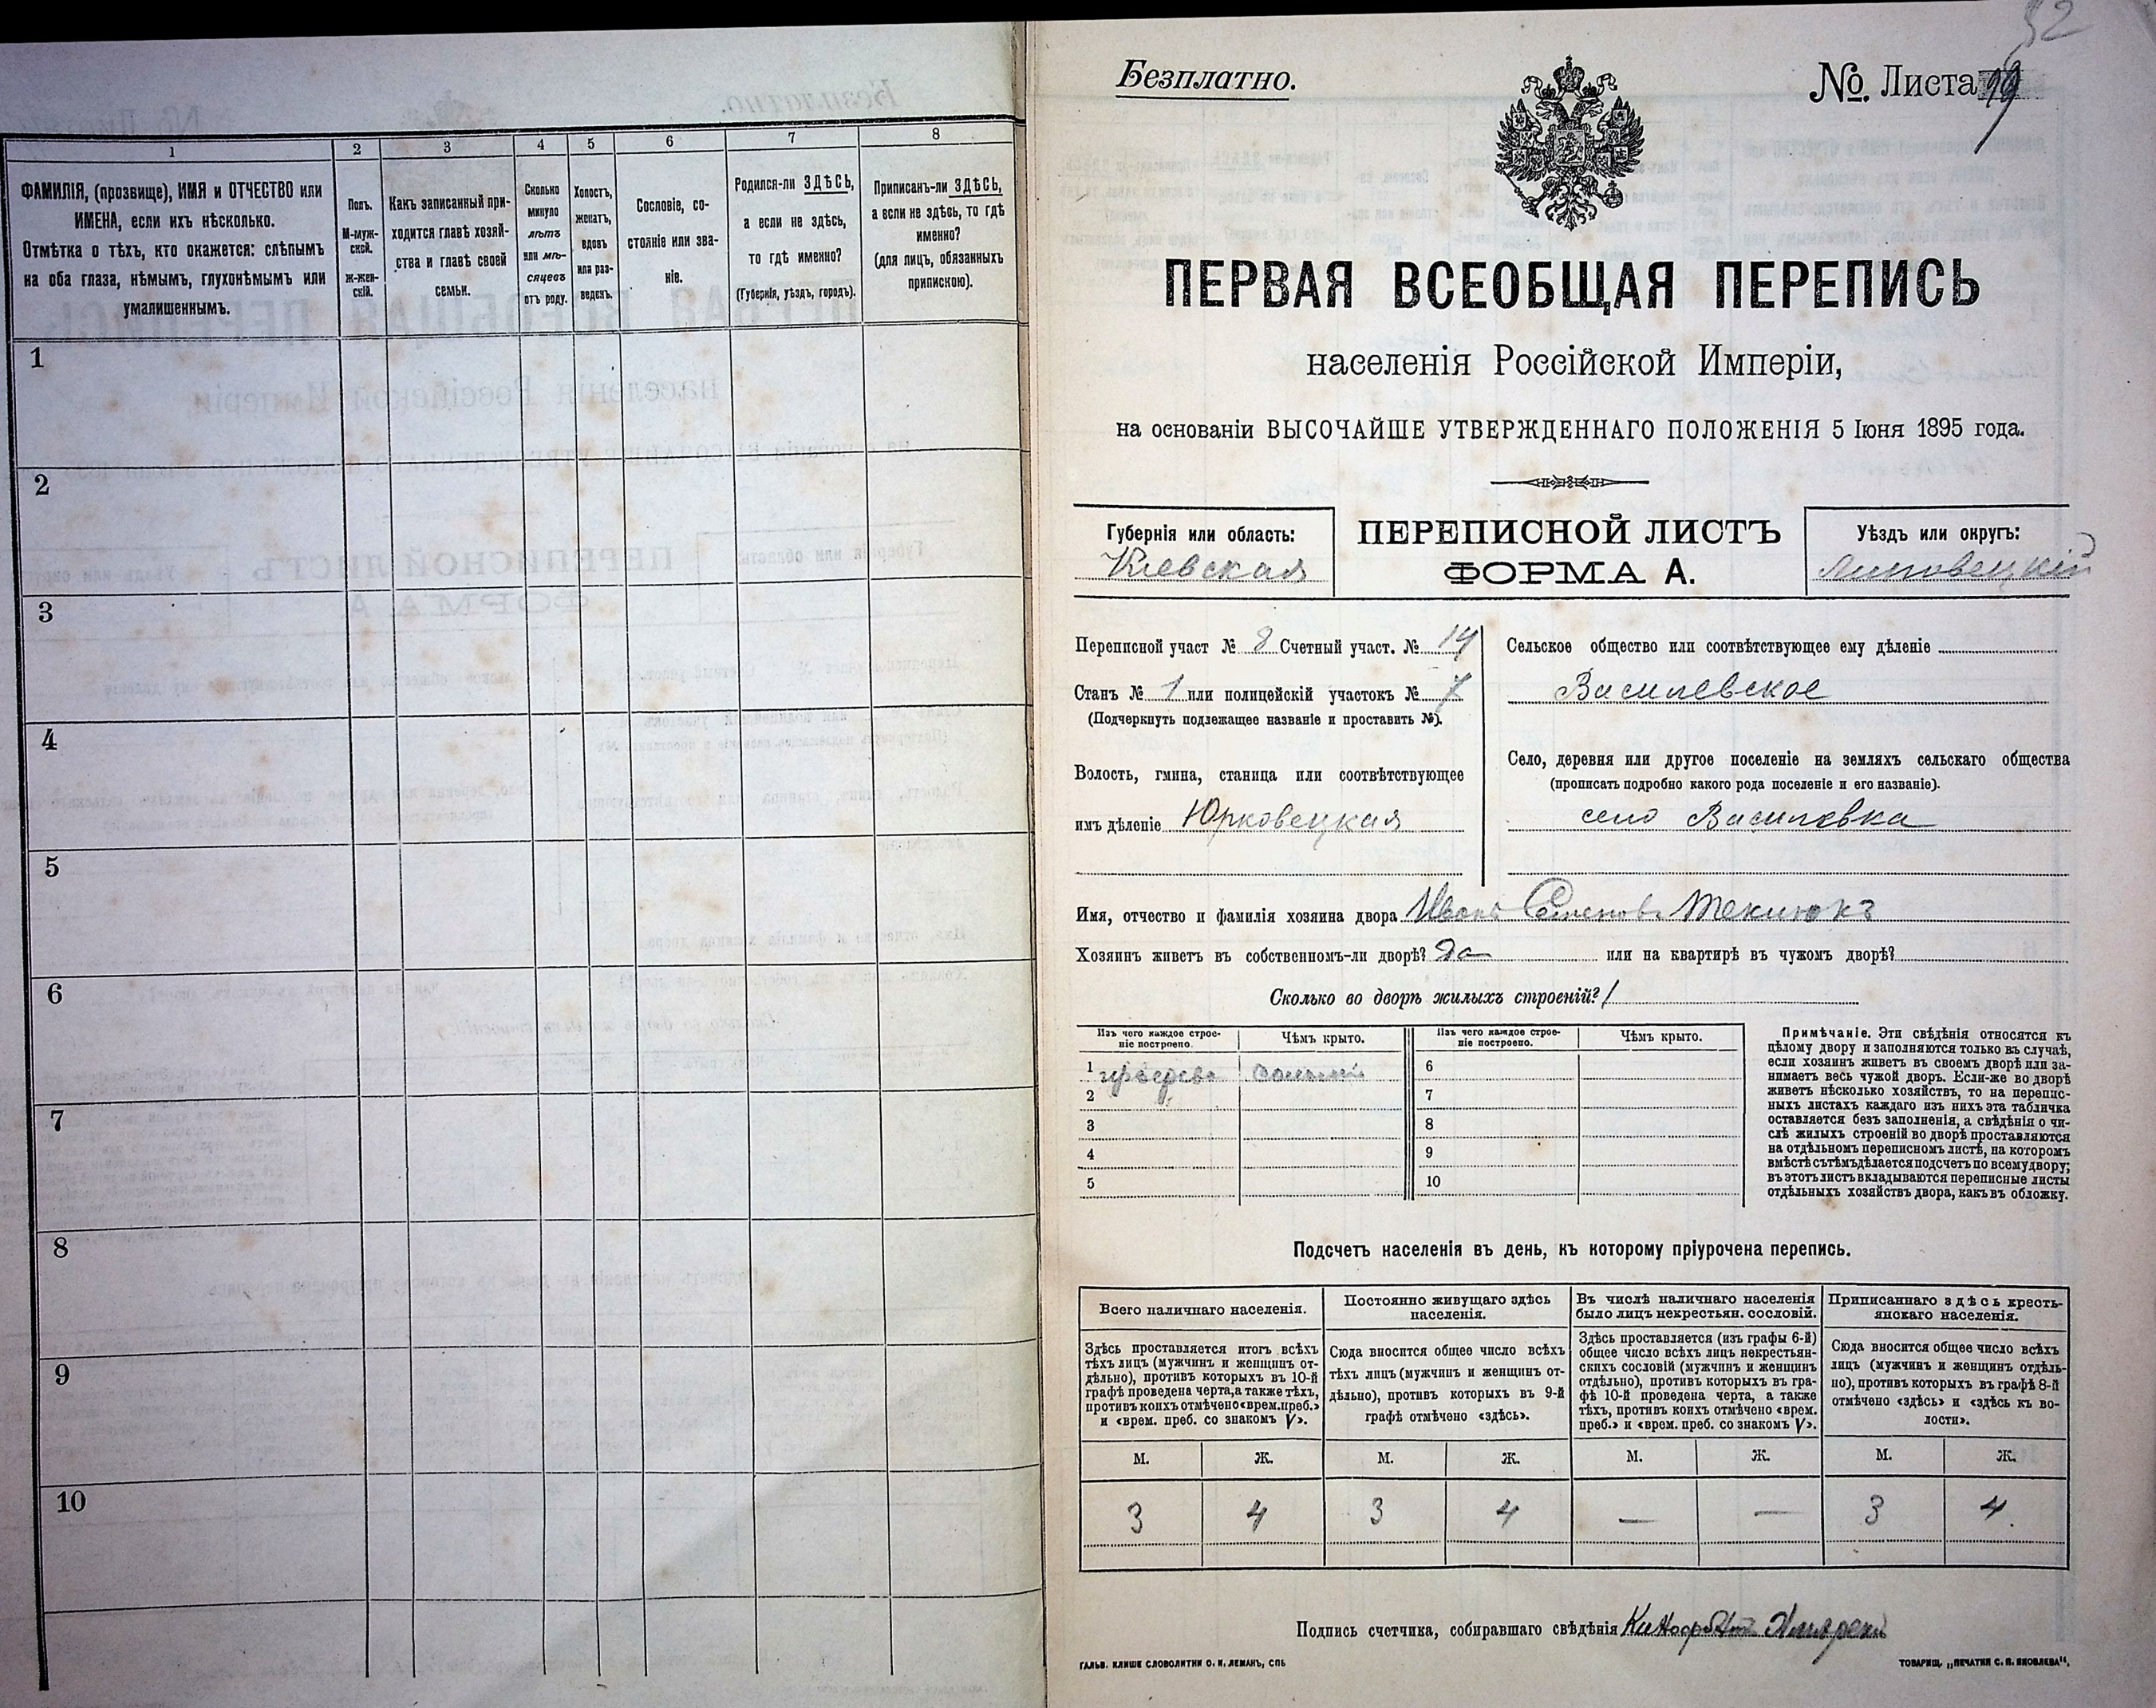 1
2
3
4
5
6
7
8
ФАМИЛІЯ, (прозвище), ИМЯ и ОТЧЕСТВО или
ИМЕНА, если ихъ нѣсколько.
Отмѣтка о тѣхъ, кто окажется: слѣпымъ
на оба глаза, нѣмымъ, глухонѣмымъ или
умалишеннымъ.
Полъ.
М-муж-
ской.
ж-жен-
скій.
Какъ записанный при-
ходится главѣ хозяй-
ства и главѣ своей
семьи.
Сколько
минуло
лѣтъ
или мѣ-
сяцевъ
отъ роду.
Холостъ,
женатъ,
вдовъ
или раз-
веденъ.
Сословіе, со-
стояніе или зва-
ніе.
Родился-ли ЗДѢСЬ,
а если не здѣсь,
то гдѣ именно?
(Губернія, уѣздъ, городъ).
Приписанъ-ли ЗДѢСЬ,
а если не здѣсь, то гдѣ
именно?
(для лицъ, обязанныхъ
припискою).
1
2
3
4
5
6
7
8
9
10
52
Безплатно.
№ Листа 19
ПЕРВАЯ ВСЕОБЩАЯ ПЕРЕПИСЬ
населенія Россійской Имперіи,
на основаніи ВЫСОЧАЙШЕ УТВЕРЖДЕННАГО ПОЛОЖЕНІЯ 5 Іюня 1895 года.
Губернія или область:
Кіевская
ПЕРЕПИСНОЙ ЛИСТЪ
ФОРМА А.
Уѣздъ или округъ:
Липовецкій
Переписной участ № 8 Счетный участ. № 14
Станъ № 1 или полицейскій участокъ № 7
(Подчеркнуть подлежащее названіе и проставить №).
Волость, гмина, станица или соотвѣтствующее
имъ дѣленіе Юрковецкая
Сельское общество или соотвѣтствующее ему дѣленіе
Василевское
Село, деревня или другое поселеніе на земляхъ сельскаго общества
(прописать подробно какого рода поселеніе и его названіе).
село Василевка
Имя, отчество и фамилія хозяина двора Иванъ Семеновъ Текиюкъ
Хозяинъ живетъ въ собственномъ-ли дворѣ? Да или на квартирѣ въ чужомъ дворѣ?
Сколько во дворѣ жилыхъ строеній? 1
Изъ чего каждое строе-
ніе построено.
Чѣмъ крыто.
Изъ чего каждое строе-
ніе построено.
Чѣмъ крыто.
1 соломой
2
3
4
5
6
7
8
9
10
Примѣчаніе. Эти свѣдѣнія относятся къ
цѣлому двору и заполняются только въ случаѣ,
если хозяинъ живетъ въ своемъ дворѣ или за-
нимаетъ весь чужой дворъ. Если-же во дворѣ
живетъ нѣсколько хозяйствъ, то на перепис-
ныхъ листахъ каждаго изъ нихъ эта табличка
оставляется безъ заполненія, а свѣдѣнія о чи-
слѣ жилыхъ строеній во дворѣ проставляются
на отдѣльномъ переписномъ листѣ, на которомъ
вмѣстѣ съ тѣмъ дѣлается подсчетъ по всему двору;
въ этотъ листъ вкладываются переписные листы
отдѣльныхъ хозяйствъ двора, какъ въ обложку.
Подсчетъ населенія въ день, къ которому пріурочена перепись.
Всего наличнаго населенія.
Постоянно живущаго здѣсь
населенія.
Въ числѣ наличнаго населенія
было лицъ некрестьян. сословій.
Приписаннаго здѣсь кресть-
янскаго населенія.
Здѣсь проставляется итогъ всѣхъ
тѣхъ лицъ (мужчинъ и женщинъ от-
дѣльно), противъ которыхъ въ 10-й
графѣ проведена черта, а также тѣхъ,
противъ коихъ отмѣчено «врем. преб.»
и «врем. преб. со знакомъ V».
Сюда вносится общее число всѣхъ
тѣхъ лицъ (мужчинъ и женщинъ от-
дѣльно), противъ которыхъ въ 9-й
графѣ отмѣчено «здѣсь».
Здѣсь проставляется (изъ графы 6-й)
общее число всѣхъ лицъ некрестьян-
скихъ сословій (мужчинъ и женщинъ
отдѣльно), противъ которыхъ въ гра-
фѣ 10-й проведена черта, а также
тѣхъ, противъ коихъ отмѣчено «врем.
преб.» и «врем. преб. со знакомъ V».
Сюда вносится общее число всѣхъ
лицъ (мужчинъ и женщинъ отдѣль-
но), противъ которыхъ въ графѣ 8-й
отмѣчено «здѣсь» и «здѣсь къ во-
лости».
М. Ж. М. Ж. М. Ж. М. Ж.
3 4 3 4 — — 3 4.
Подпись счетчика, собиравшаго свѣдѣнія
ГАЛЬВ. КЛИШЕ СЛОВОЛИТНИ О. И. ЛЕМАНЪ, СПБ
ТОВАРИЩ. „ПЕЧАТНЯ С. П. ЯКОВЛЕВА".